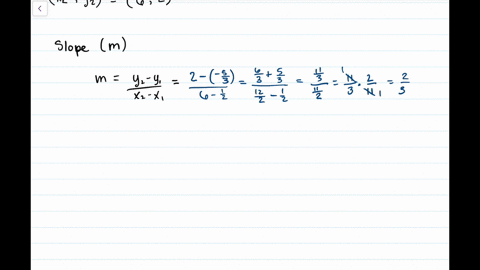 = (6, 2)
Slope (m)
m = y₂-y₁/x₂-x₁ = 2-(-5/3)/6-1/2 = 6/3+5/3/12/2-1/2 = 11/3/11/2 = 11/3 · 2/11 = 2/3